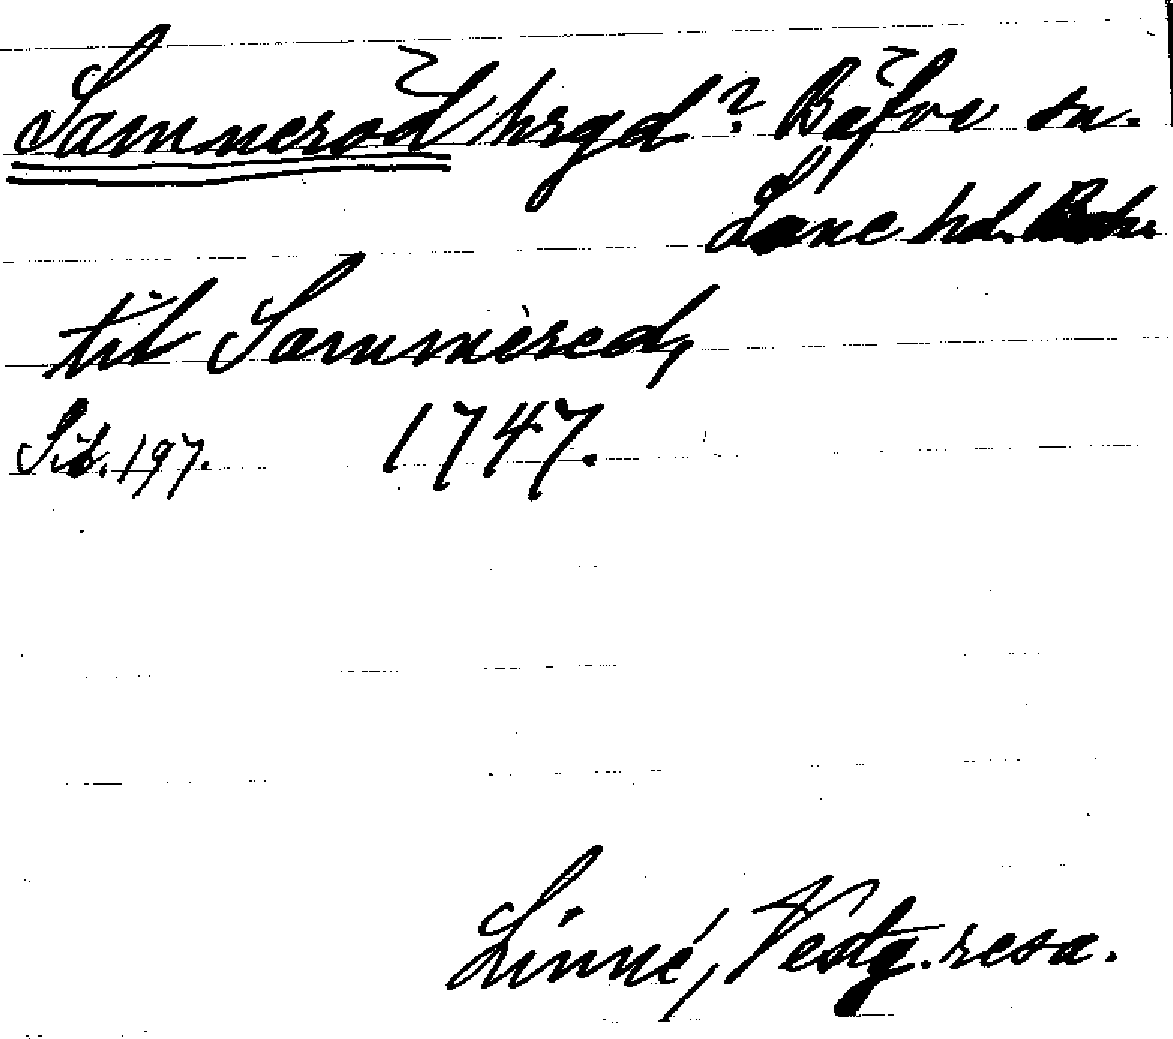 Samneröd hrgd? Bäfve sn.
Lane hd. Boh.
til Sammered,
Sid. 197. 1747.
Linné, Vestg. resa.